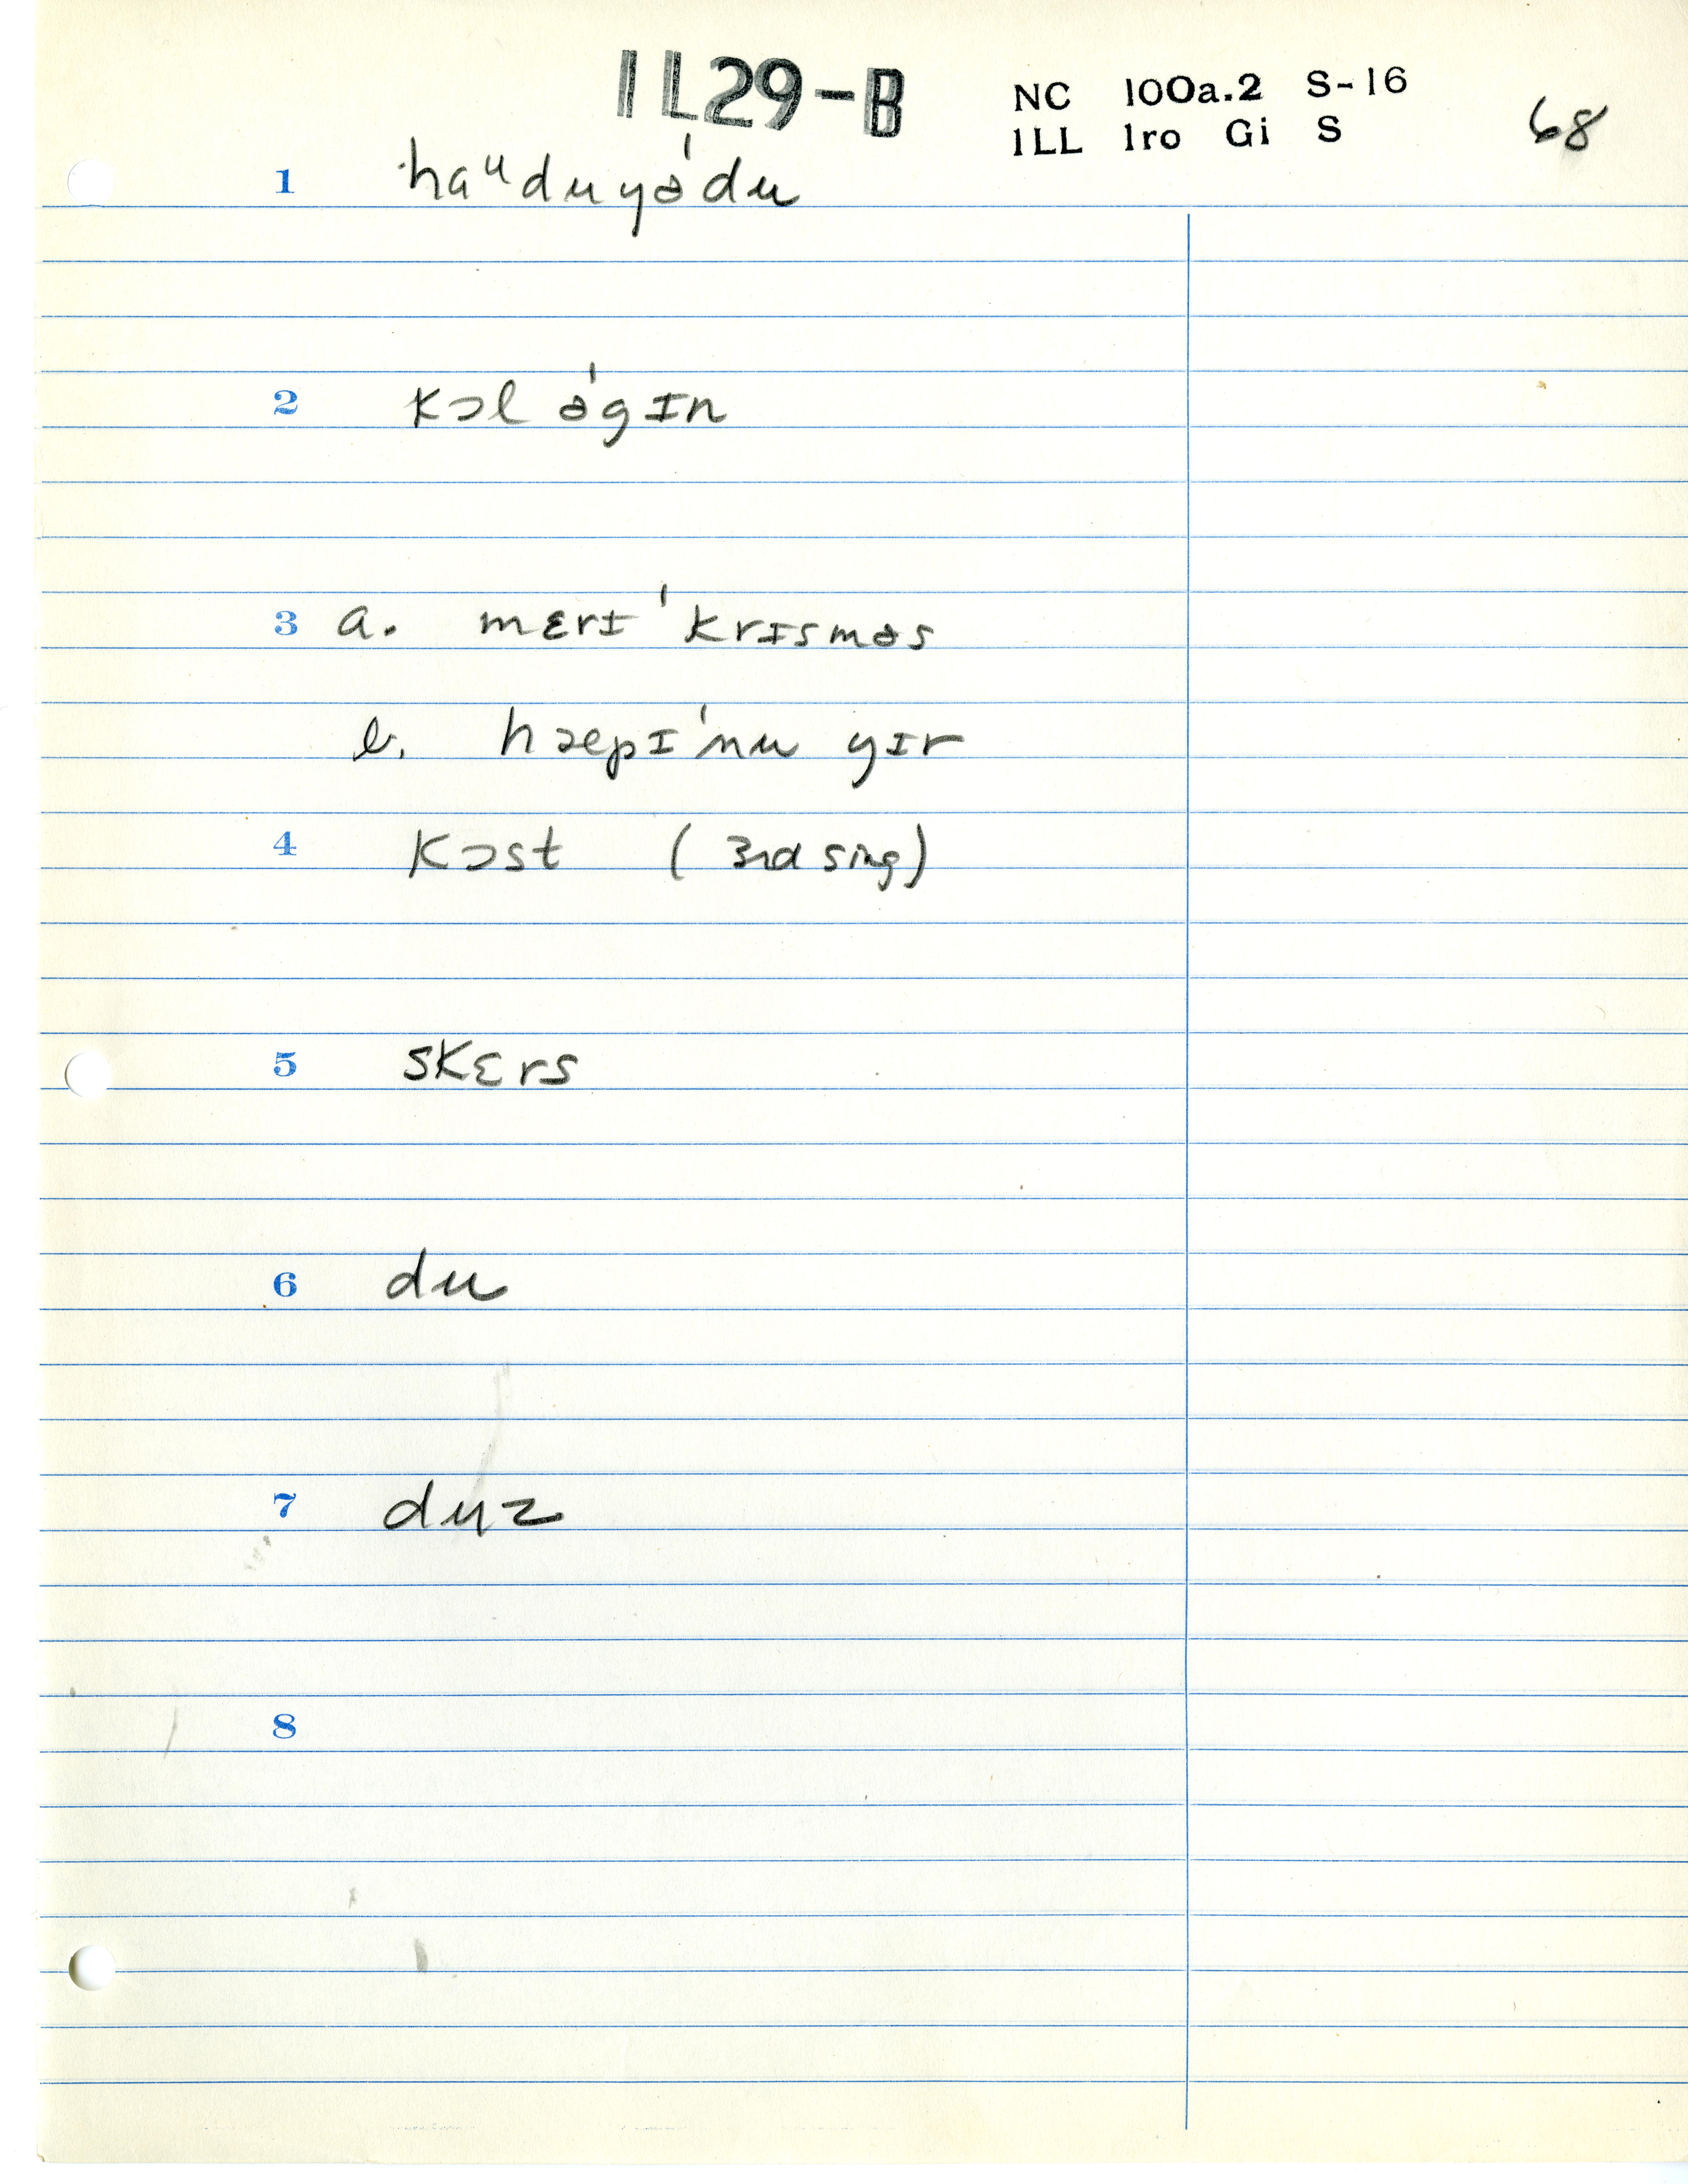 1L29-B
NC 100a.2 S-16
1LL 1ro Gi S
68
1 haᵘduyə'du
2 kɔl ə'gɪn
3 a. mɛrɪ 'krɪsməs
b. hæpɪ 'nu yɪr
4 kɔst (3rd sing)
5 skɛrs
6 du
7 duz
8